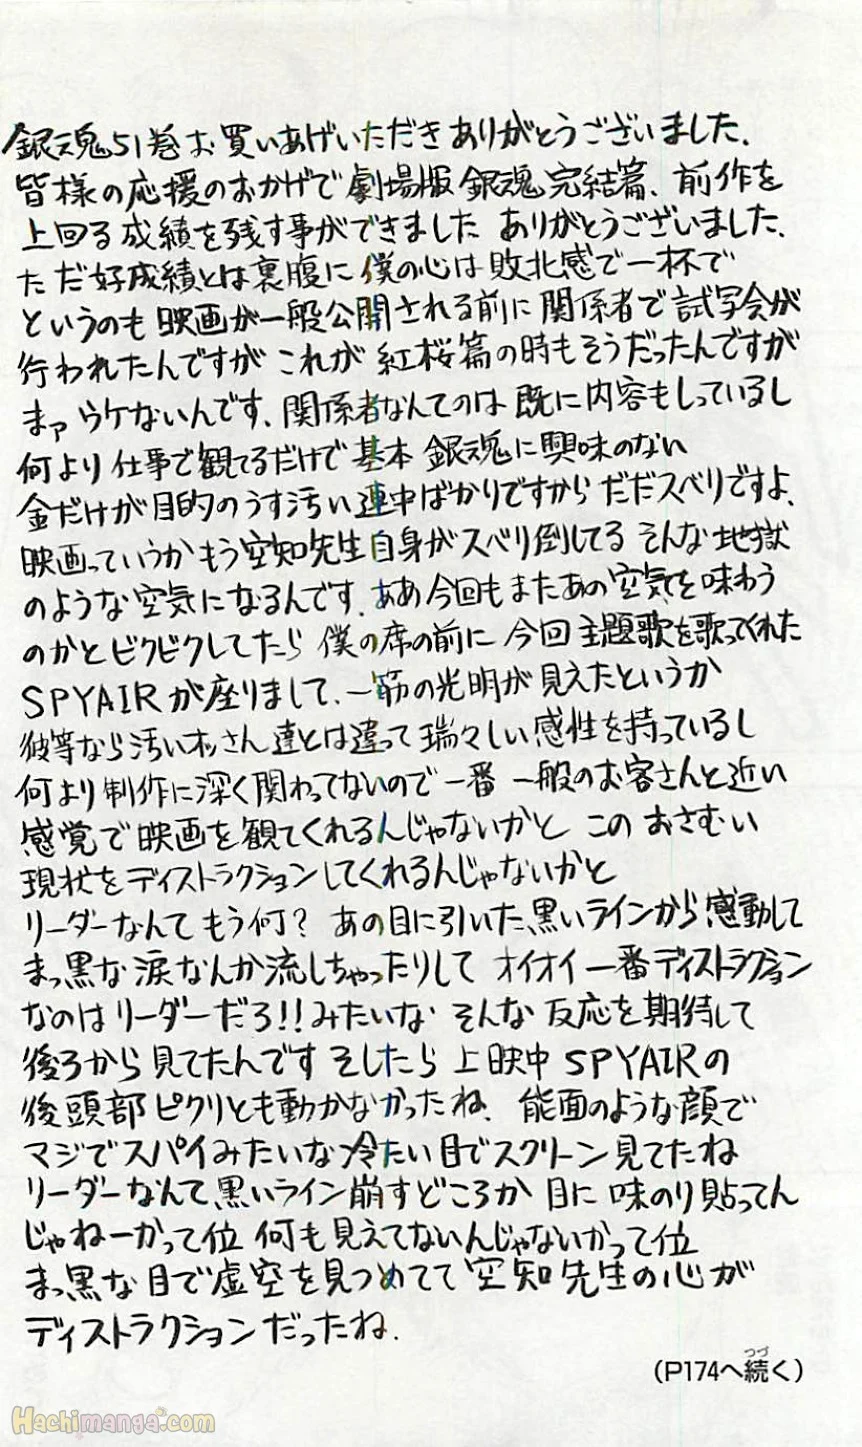 銀魂51巻お買いあげいただきありがとうございました.
皆様の応援のおかげで劇場版銀魂完結篇、前作を
上回る成績を残す事ができました ありがとうございました.
ただ好成績とは裏腹に 僕の心は敗北感で一杯で
というのも 映画が一般公開される前に 関係者で試写会が
行われたんですが これが 紅桜篇の時もそうだったんですが
まァ ウケないんです. 関係者なんてのは 既に内容もしっているし
何より 仕事で観てるだけで 基本 銀魂に興味のない
金だけが目的のうす汚い連中ばかりですから だだスベリですよ.
映画っていうか もう空知先生自身がスベリ倒してる そんな地獄
のような空気になるんです. ああ今回もまたあの空気を味わう
のかとビクビクしてたら 僕の席の前に 今回主題歌を歌ってくれた
SPYAIRが座りまして、一筋の光明が見えたというか
彼等なら汚いオッさん達とは違って 瑞々しい感性を持っているし
何より制作に深く関わってないので 一番 一般のお客さんと近い
感覚で映画を観てくれるんじゃないかと このおさむい
現状をディストラクションしてくれるんじゃないかと
リーダーなんて もう何? あの目に引いた、黒いラインから感動して
まっ黒な涙なんか流しちゃったりして オイオイ一番ディストラクション
なのはリーダーだろ!! みたいな そんな反応を期待して
後ろから見てたんです そしたら 上映中 SPYAIRの
後頭部ピクリとも動かなかったね. 能面のような顔で
マジでスパイみたいな冷たい目でスクリーン見てたね
リーダーなんて、黒いライン崩すどころか 目に 味のり貼ってん
じゃねーかって位 何も見えてないんじゃないかって位
まっ黒な目で虚空を見つめてて 空知先生の心が
ディストラクションだったね.
(P174へ続く)
つづ
Hachimanga.com